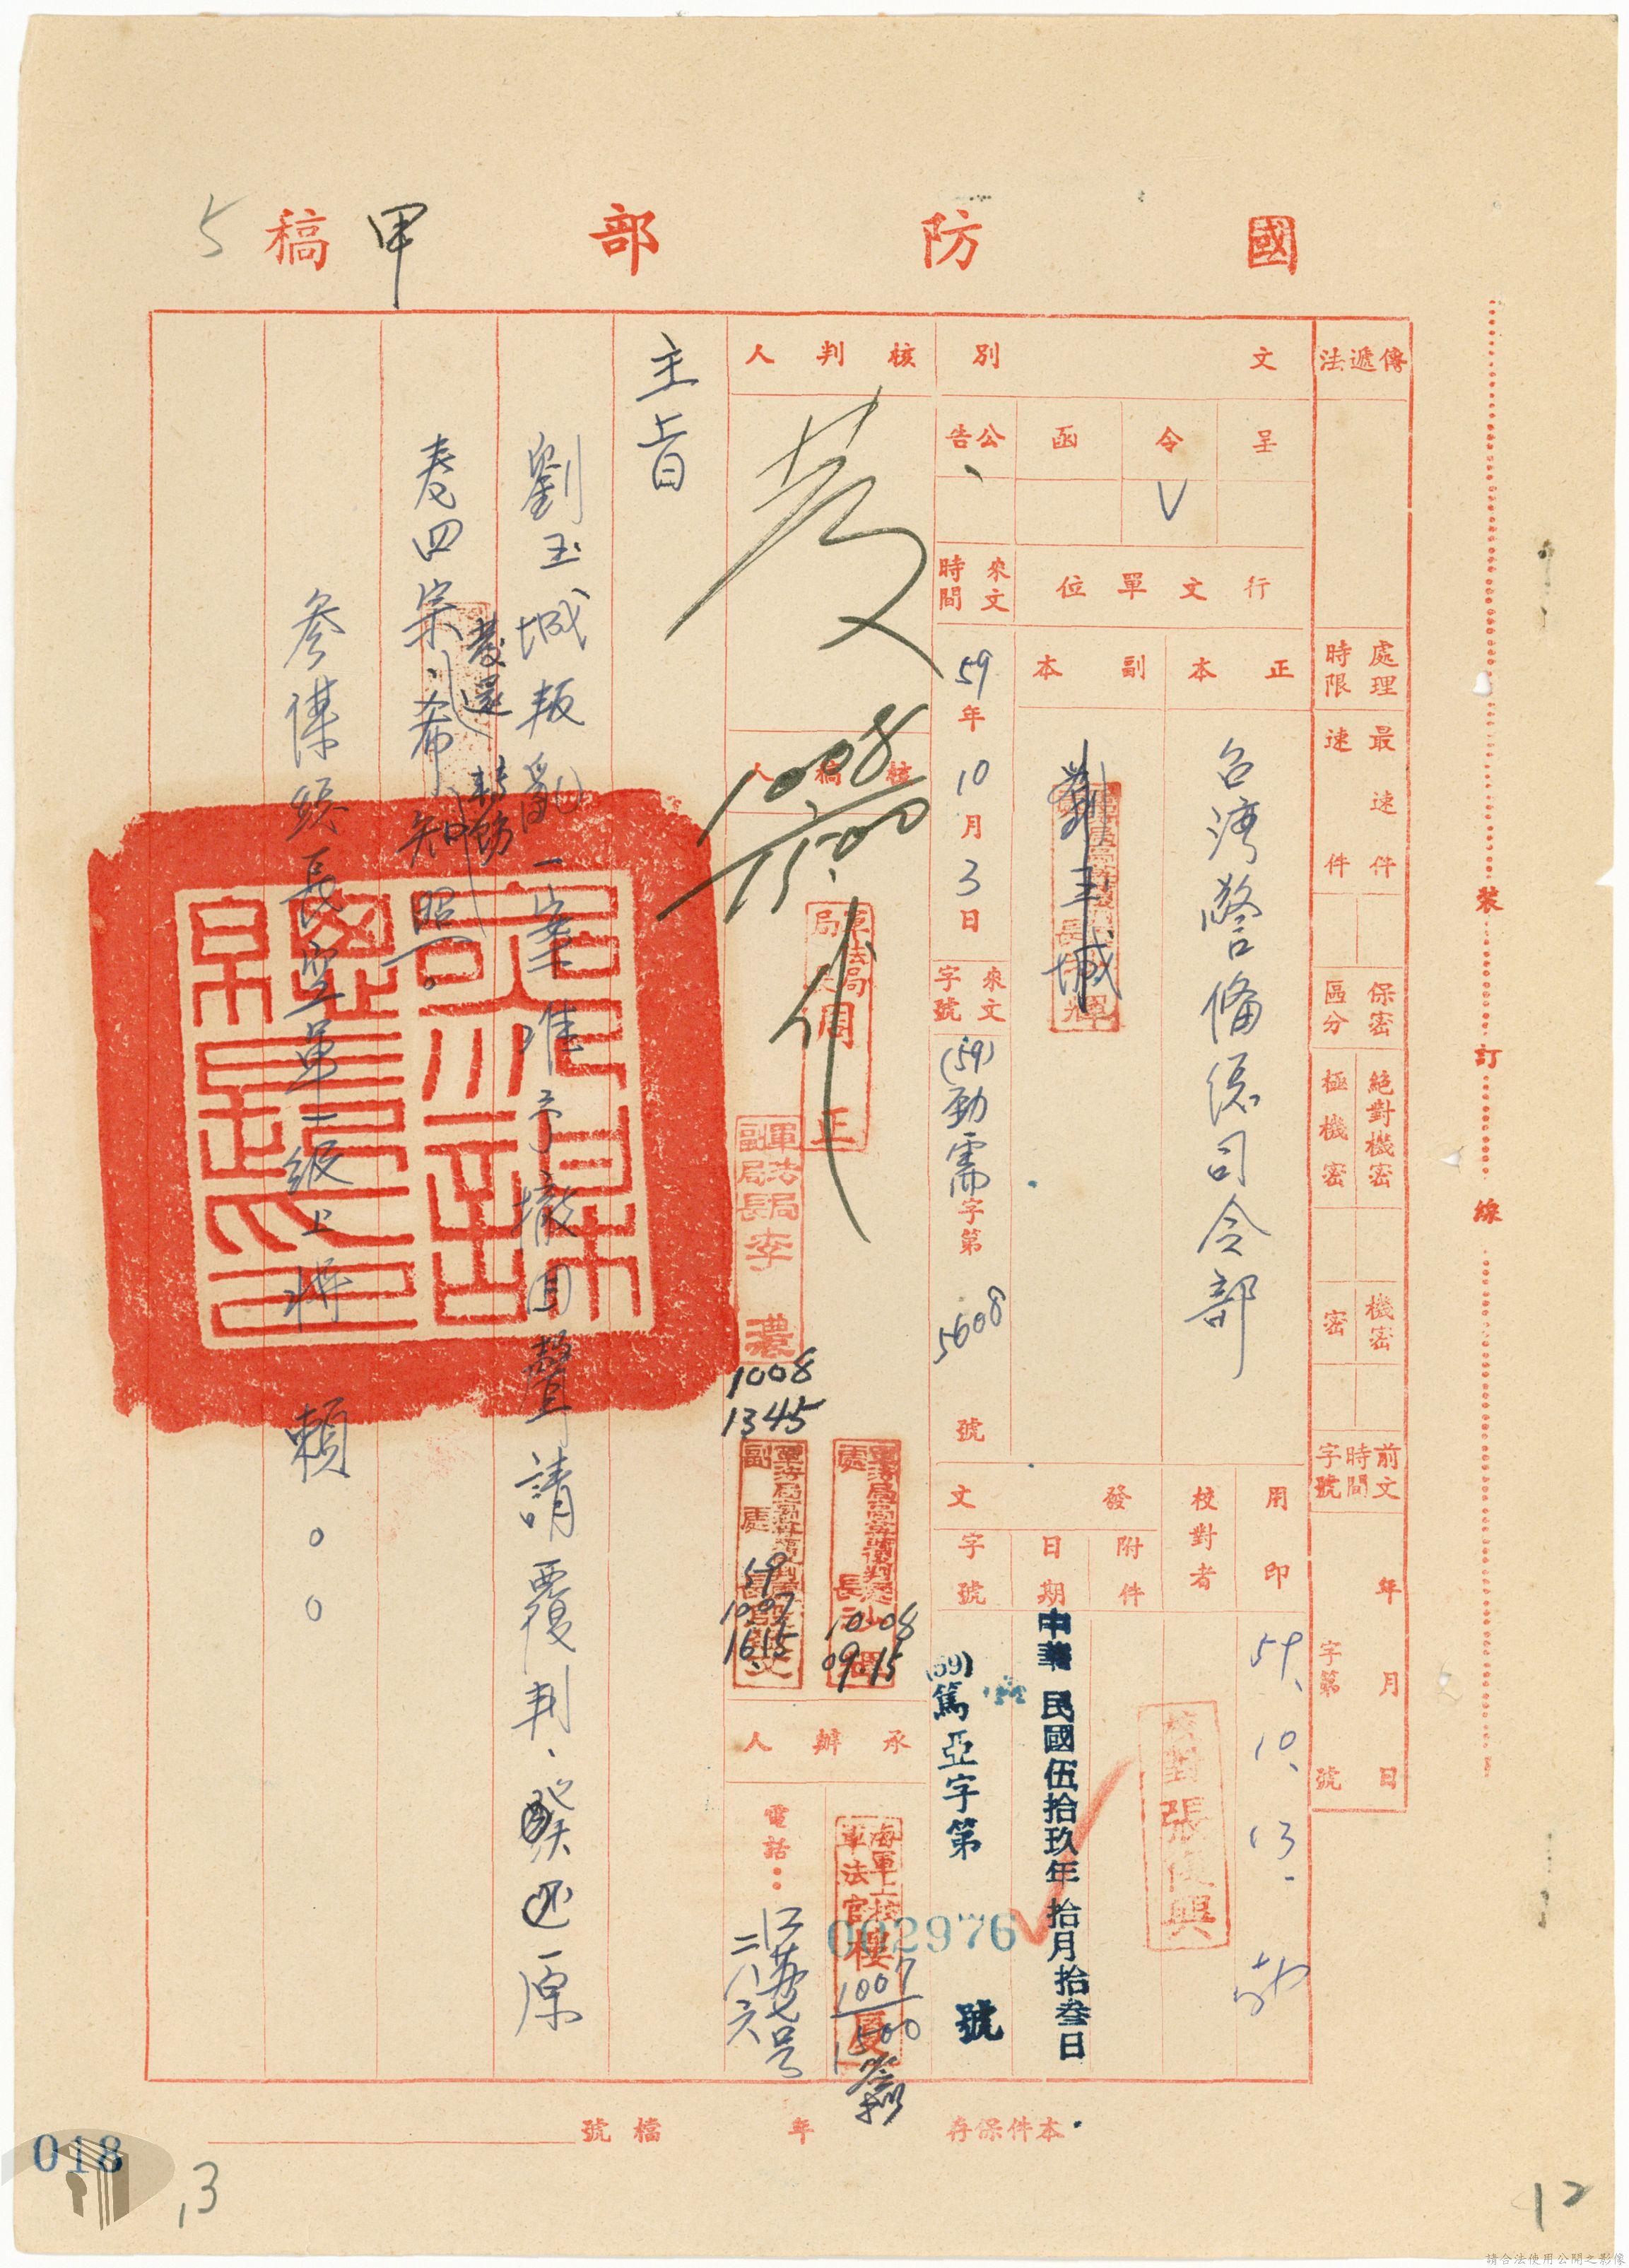 國防部 甲 稿
5
傳遞法
處理時限
最速件
速件
保密區分
絕對機密
極機密
機密
密
前文時間字號
年 月 日
字第 號
文別
呈
令
函
公告
V
行文單位
正本
副本
台灣警備總司令部
劉玉城
來文時間
59年10月3日
來文字號
(59)勁需字第5608號
用印
59.10.13.
校對者
校對 張 興
發文
附件
日期
中華民國伍拾玖年拾月拾叁日
字號
(59)篤亞字第 002976 號
核判人
1008
1500
核稿人
軍法局局長 周 正
軍法局副局長 李 濃
1008
1345
10.08
09.15
59
1007
1615
承辦人
海軍上校軍法官 樓
1007
1500
電話：
二八六
主旨
劉玉城叛亂一案准予撤回聲請覆判、檢還原
卷四宗、希知照。
發還
轉飭
參謀總長空軍一級上將 賴 ○ ○
本件保存 年 檔號
裝 訂 線
018
13
12
請合法使用公開之影像